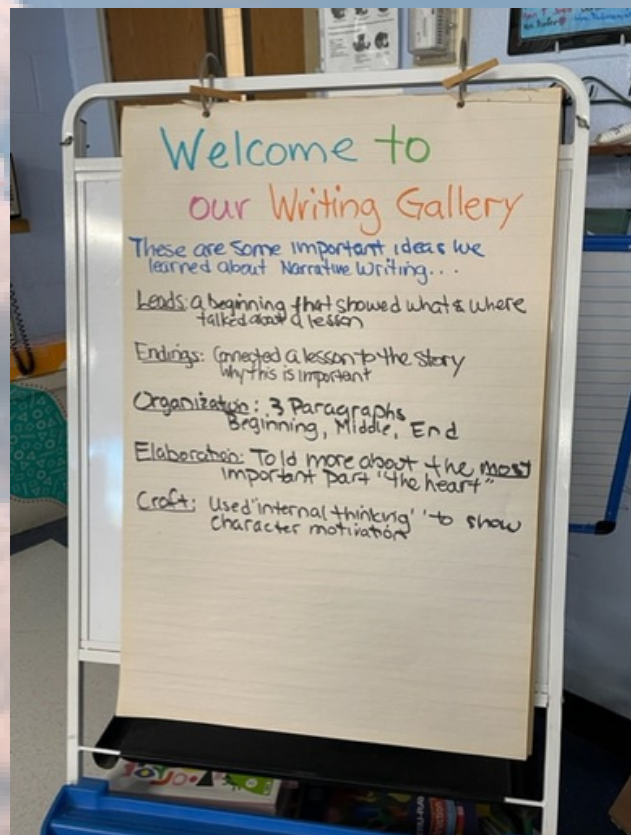 Welcome to
our Writing Gallery
These are some important ideas we
learned about Narrative Writing...
Leads: a beginning that showed what & where
talked about a lesson
Endings: Connected a lesson to the story
why this is important
Organization: 3 Paragraphs
Beginning, Middle, End
Elaboration: Told more about the most
important part "the heart"
Craft: Used "internal thinking" to show
character motivation